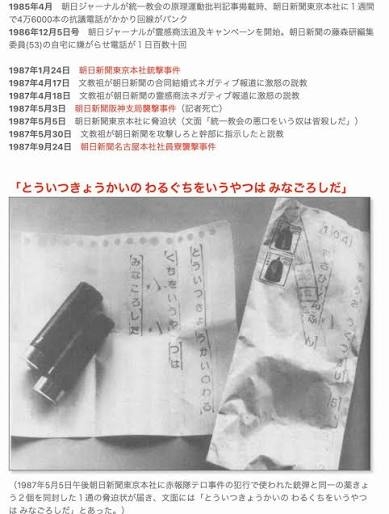 1985年4月　朝日ジャーナルが統一教会の原理運動批判記事掲載時、朝日新聞東京本社に１週間
で4万6000本の抗議電話がかかり回線がパンク
1986年12月5日号　朝日ジャーナルが霊感商法追及キャンペーンを開始。朝日新聞の藤森研編集
委員(53)の自宅に嫌がらせ電話が１日百数十回
1987年1月24日　朝日新聞東京本社銃撃事件
1987年4月17日　文教祖が朝日新聞の合同結婚式ネガティブ報道に激怒の説教
1987年4月18日　文教祖が朝日新聞の霊感商法ネガティブ報道に激怒の説教
1987年5月3日　朝日新聞阪神支局襲撃事件（記者死亡）
1987年5月5日　朝日新聞東京本社に脅迫状（文面「統一教会の悪口をいう奴は皆殺しだ」）
1987年5月30日　文教祖が朝日新聞を攻撃しろと幹部に指示したと説教
1987年9月24日　朝日新聞名古屋本社社員寮襲撃事件
「とういつきょうかいの わるぐちをいうやつは みなごろしだ」
とういつきょうかいのわる
ぐちをいうやつは
みなごろしだ
（1987年5月5日午後朝日新聞東京本社に赤報隊テロ事件の犯行で使われた銃弾と同一の薬きょ
う２個を同封した１通の脅迫状が届き、文面には「とういつきょうかいの わるくちをいうやつ
は みなごろしだ」とあった。）